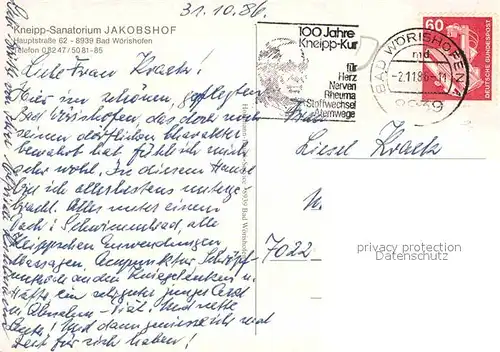 31.10.86.
Kneipp-Sanatorium JAKOBSHOF
Hauptstraße 62 - 8939 Bad Wörishofen
Telefon 08247/5081-85
100 Jahre
Kneipp-Kur
für
Herz
Nerven
Rheuma
Stoffwechsel
Atemwege
BAD WÖRISHOFEN 1
md
-2.11.86-11
8939
60
DEUTSCHE BUNDESPOST
Liebe Frau Kraetz!
Hier im schönen, gepflegten
Bad Wörishofen, das doch noch
seinen dörflichen Charakter
bewahrt hat fühl ich mich
sehr wohl. In diesem Hause
bin ich allerbestens unterge-
bracht. Alles unter einem
Dach: Schwimmbad, alle
Kneippschen Anwendungen
Massagen, Acupunktur, Schröpf-
methode an den Kniegelenken u.
Hüfte. Ein sehr guter junger Arzt
Und nette
Leute! Und dann geniesse ich viel
Zeit für sich haben!
Frau
Liesel Kraetz
7022
privacy protection
Datenschutz